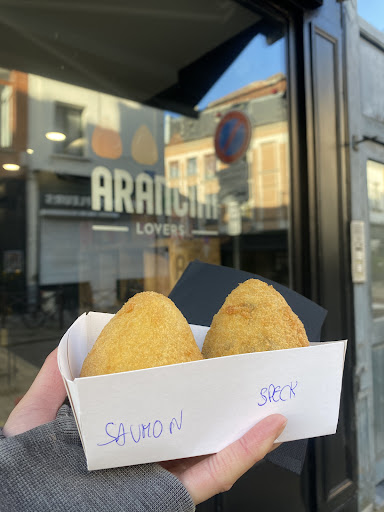 ARANCINI
LOVERS
SAUMON SPECK